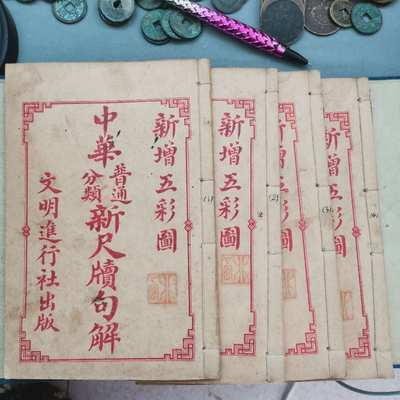 新增五彩圖
中華普通分類新尺牘句解
文明進行社出版
新增五彩圖
新增五彩圖
新增五彩圖